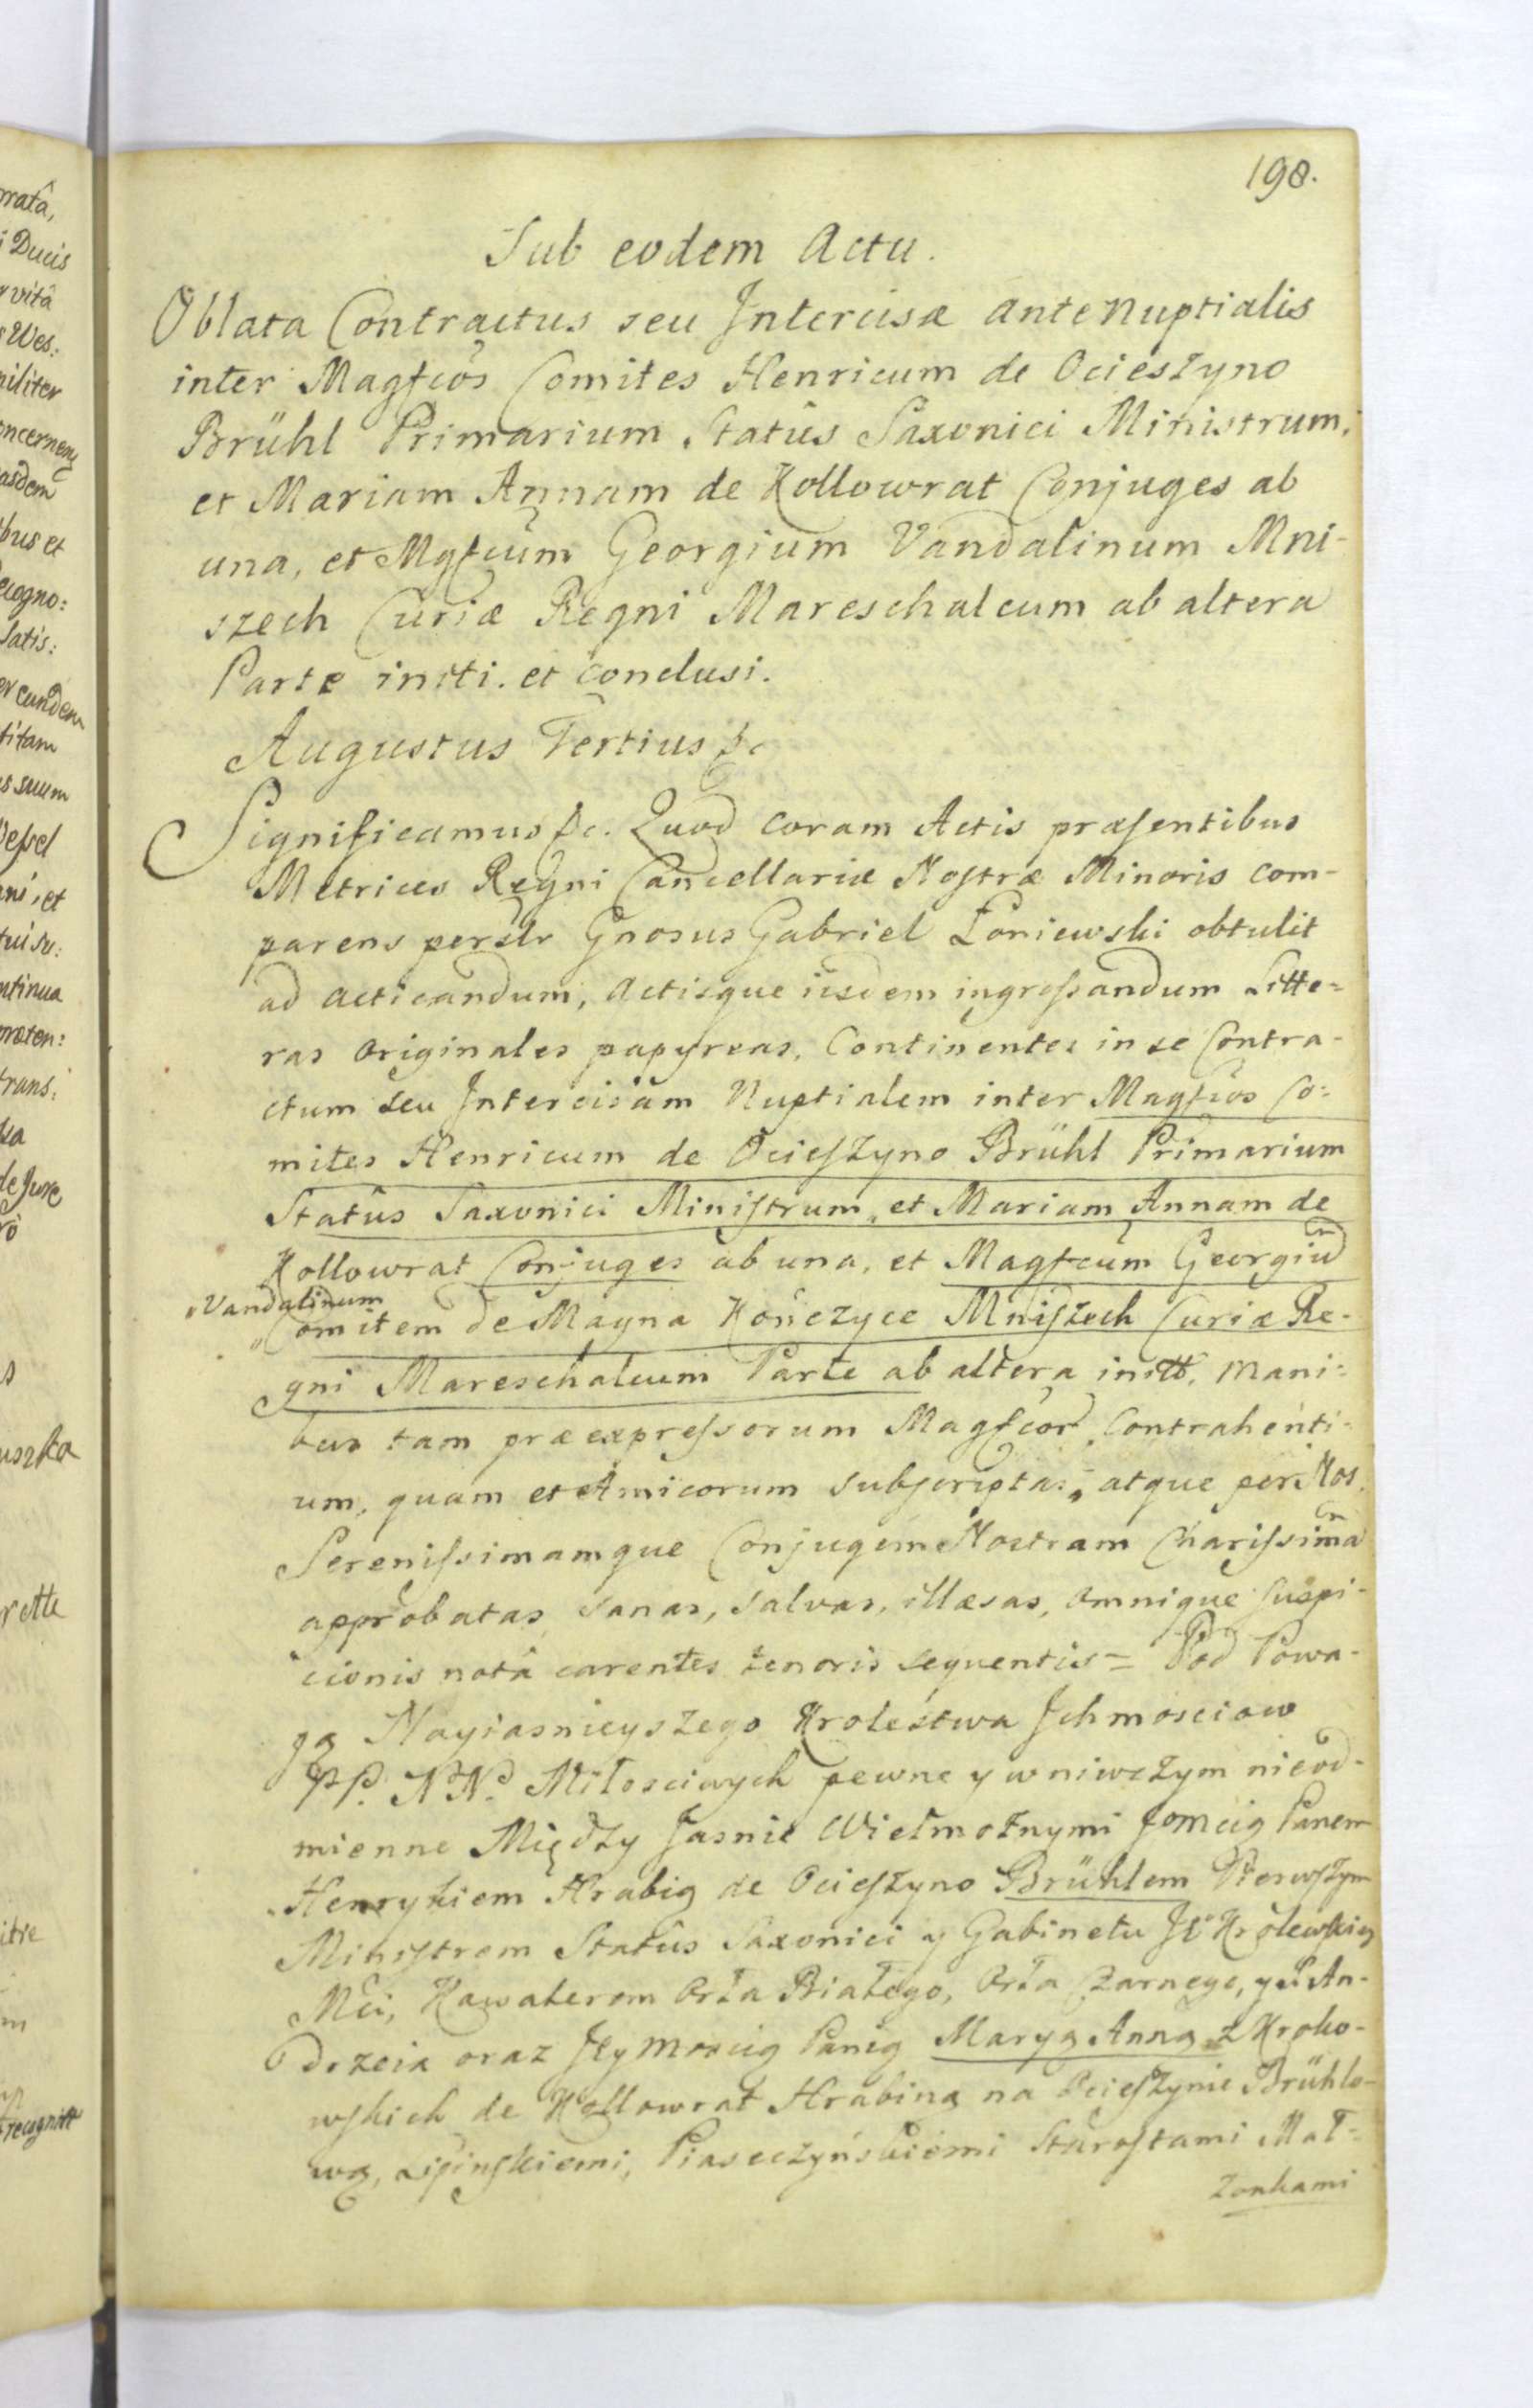 198.
Sub eodem Actu.
Oblata Contractus seu Intercisæ antenuptialis
inter Magfcos Comites Henricum de Ocieszyno
Brühl Primarium Statûs Saxonici Ministrum,
et Mariam Annam de Kollowrat Conjuges ab
una, et Mgfcum Georgium Vandalinum Mni-
szech Curiæ Regni Mareschalcum ab altera
Parte initi et conclusi.
Augustus Tertius &c
Significamus &c. Quod coram Actis præsentibus
Metrices Regni Cancellariæ Nostræ Minoris com-
parens perslr Gnosus Gabriel Łoniewski obtulit
ad acticandum, Actisque iisdem ingrossandum Litte=
ras Originales papyreas, Continentes in se Contra-
ctum seu Intercisam Nuptialem inter Magfcos Co=
mites Henricum de Ocieszyno Brühl Primarium
Statûs Saxonici Ministrum, et Mariam Annam de
Kollowrat Conjuges ab una, et Magfcum Georgiu
Vandalinum
Comitem de Magna Kończyce Mniszech Curiæ Re-
gni Mareschalcum Parte ab altera initt. mani=
bus tam præexpressorum Magfcor Contrahenti-
um, quam et Amicorum subscriptas, atque per Nos,
Serenissimamque Conjugem Nostram Charissima
approbatas, sanas, salvas, illæsas, omnique suspi-
cionis notâ carentes tenoris sequentis = Pod Powa-
gą Nayiasnieyszego Krolestwa Ichmosciow
PP. NN. Miłosciwych pewne y wniwczym nieod-
mienne Między Jasnie Wielmożnymi Jomcią Panem
Henrykiem Hrabią de Ocieszyno Brühlem Pierwszym
Ministrem Statûs Saxonici y Gabinetu JKrolewskiey
Mci, Kawalerem Orła Białego, Orła Czarnego, y S. An-
drzeia oraz Jeymoscią Panią Maryą Anną z Kroko-
wskich de Kollowrat Hrabiną na Ocieszynie Brühlo-
wą, Lipinskiemi, Piaseczyńskiemi Starostami Mał=
żonkami